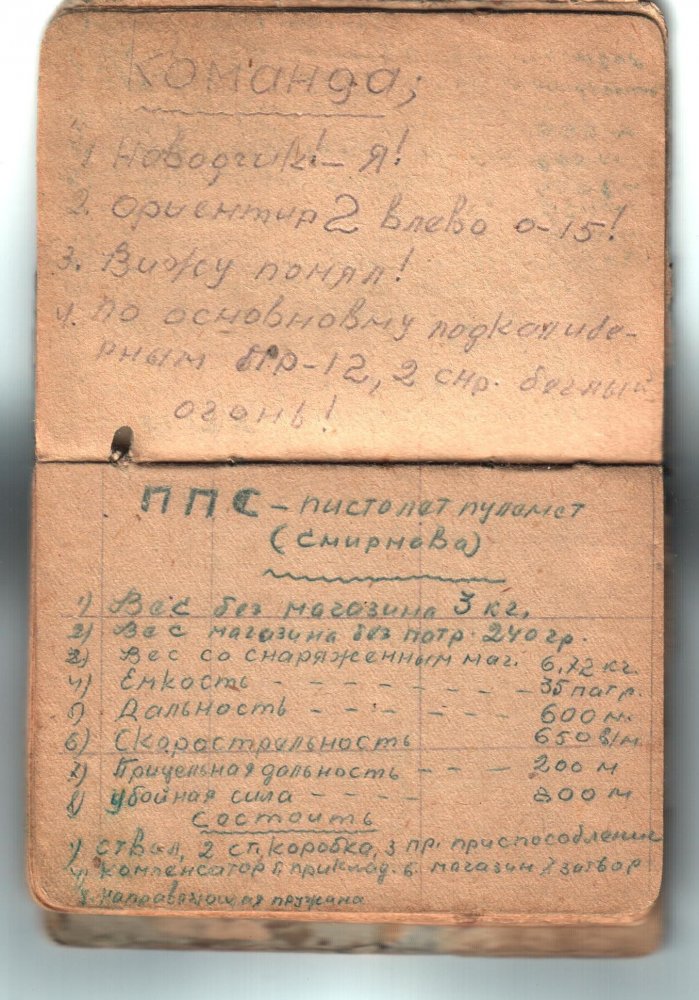 Команда;
1. Новодчик! – Я!
2. Ориентир 2 влево 0-15!
3. Вижу понял!
4. по основному подкалибе-
рным Пр-12, 2 снр. беглый
огонь!
ППС – пистолет пуламет
(Смирнова)
1) Вес без магазина 3 кг.
2) Вес магазина без патр. 240 гр.
3) Вес со снаряженным маг. 6,72 кг.
4) Емкость – – – – – – – – 35 патр.
5) Дальность – – – – – – – 600 м.
6) Скорострельность 650 в/м.
7) Прицельная дальность – – – 200 м
8) убойная сила – – – – 800 м
Состоить
1) ствол, 2 ст. коробка, 3 пр. приспособление
4) компенсатор 5 приклад. 6. магазин 7 затвор
8. направляющая пружина